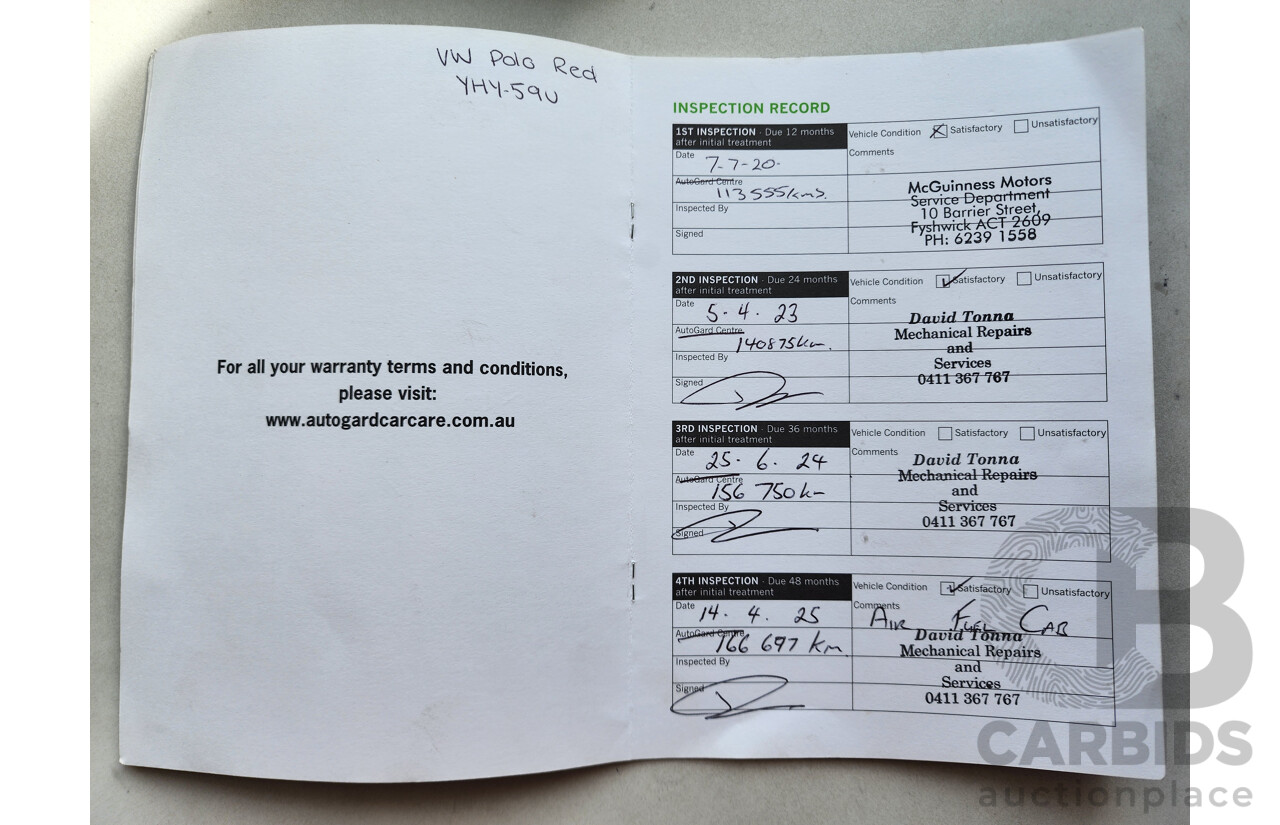 VW Polo Red
YHY-59U
For all your warranty terms and conditions,
please visit:
www.autogardcarcare.com.au
INSPECTION RECORD
1ST INSPECTION - Due 12 months
after initial treatment
Date 7-7-20-
AutoGard Centre
113 555 kms.
Inspected By
Signed
Vehicle Condition Satisfactory Unsatisfactory
Comments
McGuinness Motors
Service Department
10 Barrier Street,
Fyshwick ACT 2609
PH: 6239 1558
2ND INSPECTION - Due 24 months
after initial treatment
Date 5. 4. 23
AutoGard Centre
140875 km.
Inspected By
Signed
Vehicle Condition Satisfactory Unsatisfactory
Comments
David Tonna
Mechanical Repairs
and
Services
0411 367 767
3RD INSPECTION - Due 36 months
after initial treatment
Date 25. 6. 24
AutoGard Centre
156 750 km
Inspected By
Signed
Vehicle Condition Satisfactory Unsatisfactory
Comments
David Tonna
Mechanical Repairs
and
Services
0411 367 767
4TH INSPECTION - Due 48 months
after initial treatment
Date 14. 4. 25
AutoGard Centre
166 697 km.
Inspected By
Signed
Vehicle Condition Satisfactory Unsatisfactory
Comments
AIR FUEL CAB
David Tonna
Mechanical Repairs
and
Services
0411 367 767
CB
CARBIDS
auctionplace